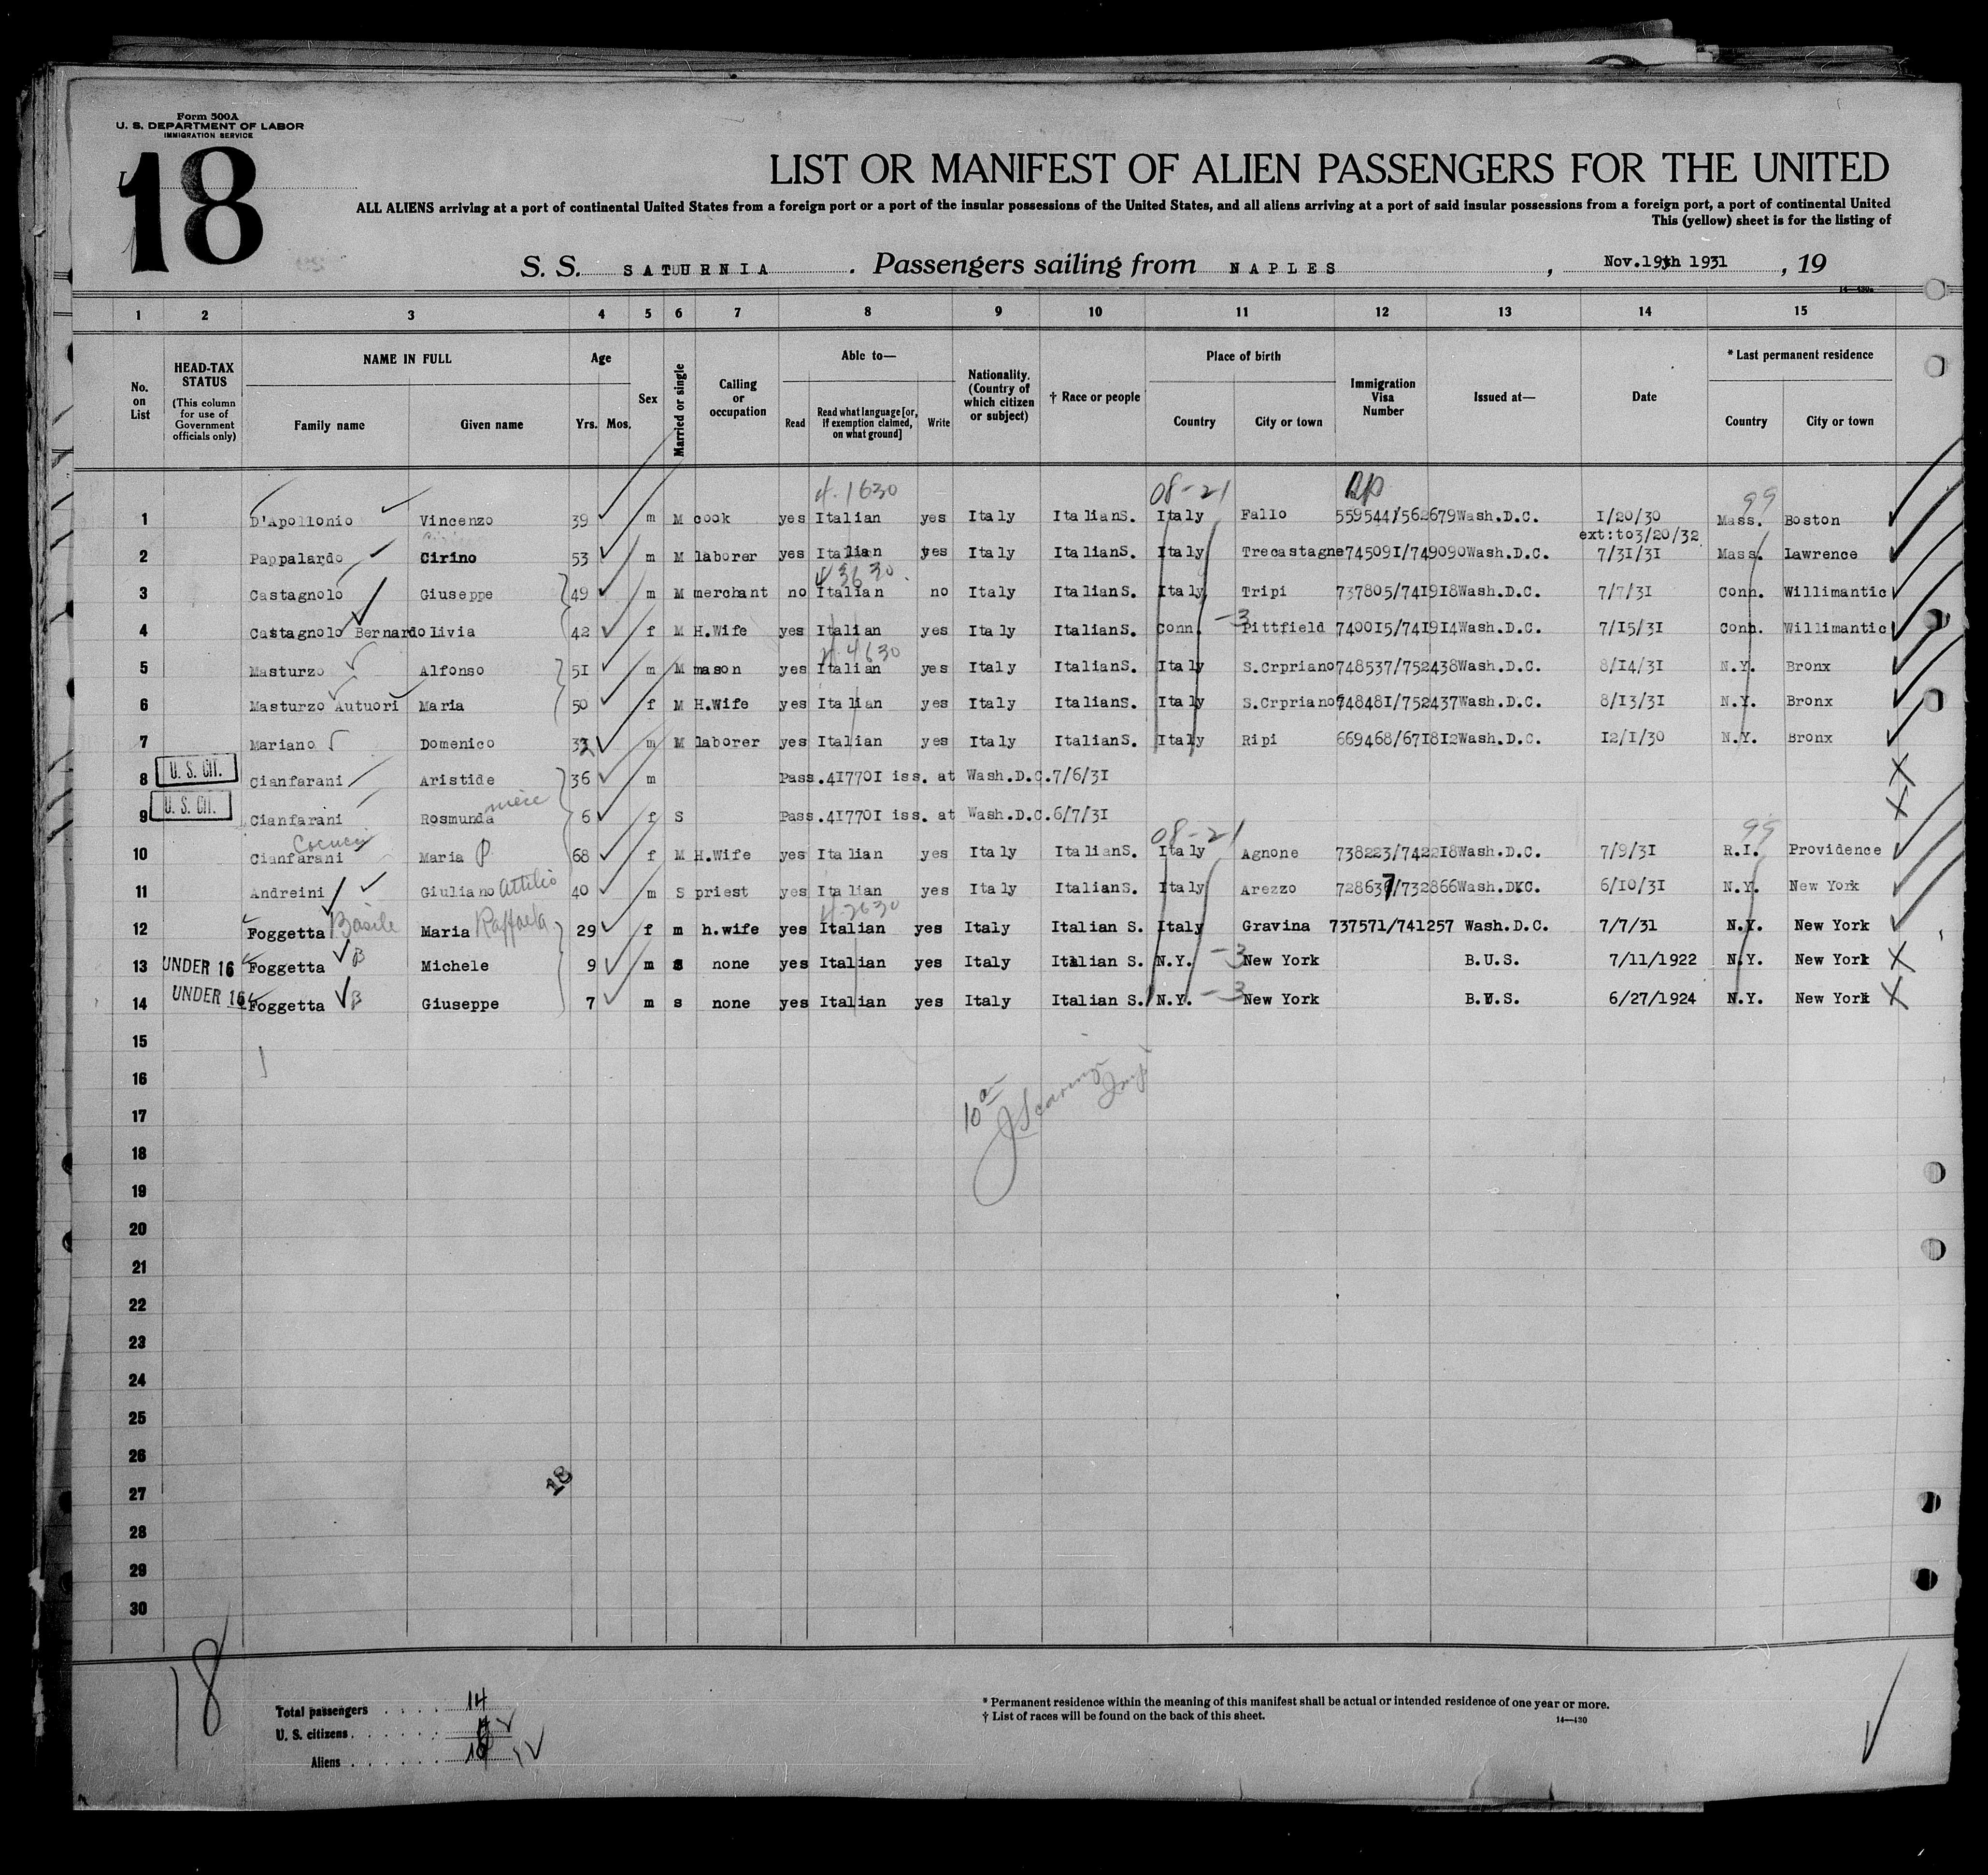 Form 500A
U. S. DEPARTMENT OF LABOR
IMMIGRATION SERVICE
18
LIST OR MANIFEST OF ALIEN PASSENGERS FOR THE UNITED
ALL ALIENS arriving at a port of continental United States from a foreign port or a port of the insular possessions of the United States, and all aliens arriving at a port of said insular possessions from a foreign port, a port of continental United
This (yellow) sheet is for the listing of
S. S. SATURNIA. Passengers sailing from NAPLES, Nov.19th 1931, 19
14—430
1 2 3 4 5 6 7 8 9 10 11 12 13 14 15
No. on List
HEAD-TAX STATUS
(This column for use of Government officials only)
NAME IN FULL
Family name Given name
Age
Yrs. Mos.
Sex
Married or single
Calling or occupation
Able to—
Read Read what language [or, if exemption claimed, on what ground] Write
Nationality. (Country of which citizen or subject)
† Race or people
Place of birth
Country City or town
Immigration Visa Number
Issued at—
Date
* Last permanent residence
Country City or town
4-1630 08-21 99
1 D'Apollonio Vincenzo 39 m M cook yes Italian yes Italy ItalianS. Italy Fallo 559544/562679 Wash.D.C. 1/20/30 Mass. Boston
ext:to3/20/32
2 Pappalardo Cirino 53 m M laborer yes Italian yes Italy ItalianS. Italy Trecastagne 745091/749090 Wash.D.C. 7/31/31 Mass. Lawrence
4 3630
3 Castagnolo Giuseppe 49 m M merchant no Italian no Italy ItalianS. Italy Tripi 737805/741918 Wash.D.C. 7/7/31 Conn. Willimantic
4 Castagnolo Bernardo Livia 42 f M H.Wife yes Italian yes Italy ItalianS. Conn. -3 Pittfield 740015/741914 Wash.D.C. 7/15/31 Conn. Willimantic
4 4630
5 Masturzo Alfonso 51 m M mason yes Italian yes Italy ItalianS. Italy S.Crpriano 748537/752438 Wash.D.C. 8/14/31 N.Y. Bronx
6 Masturzo Autuori Maria 50 f M H.Wife yes Italian yes Italy ItalianS. Italy S.Crpriano 748481/752437 Wash.D.C. 8/13/31 N.Y. Bronx
7 Mariano Domenico 32 m M laborer yes Italian yes Italy ItalianS. Italy Ripi 669468/671812 Wash.D.C. 12/1/30 N.Y. Bronx
8 U. S. CIT. Cianfarani Aristide 36 m Pass.417701 iss. at Wash.D.C.7/6/31 X
9 U. S. CIT. Cianfarani Rosmunda niece 6 f S Pass.417701 iss. at Wash.D.C.6/7/31 X
Cocucci 08-21 99
10 Cianfarani Maria 68 f M H.Wife yes Italian yes Italy ItalianS. Italy Agnone 738223/742218 Wash.D.C. 7/9/31 R.I. Providence
11 Andreini Giuliano Attilio 40 m S priest yes Italian yes Italy ItalianS. Italy Arezzo 728637/732866 Wash.D.C. 6/10/31 N.Y. New York
4-2630
12 Foggetta Basile Maria Raffaela 29 f m h.wife yes Italian yes Italy Italian S. Italy Gravina 737571/741257 Wash.D.C. 7/7/31 N.Y. New York
13 UNDER 16 Foggetta B Michele 9 m s none yes Italian yes Italy Italian S. N.Y. -3 New York B.U.S. 7/11/1922 N.Y. New York X
14 UNDER 16 Foggetta B Giuseppe 7 m s none yes Italian yes Italy Italian S. N.Y. -3 New York B.U.S. 6/27/1924 N.Y. New York X
15
16
17 10 am
18
19
20
21
22
23
24
25
26
27 18
28
29
30
18
Total passengers . . . . 14
U. S. citizens . . . . . .
Aliens . . . . . . 10
* Permanent residence within the meaning of this manifest shall be actual or intended residence of one year or more.
† List of races will be found on the back of this sheet.
14—430